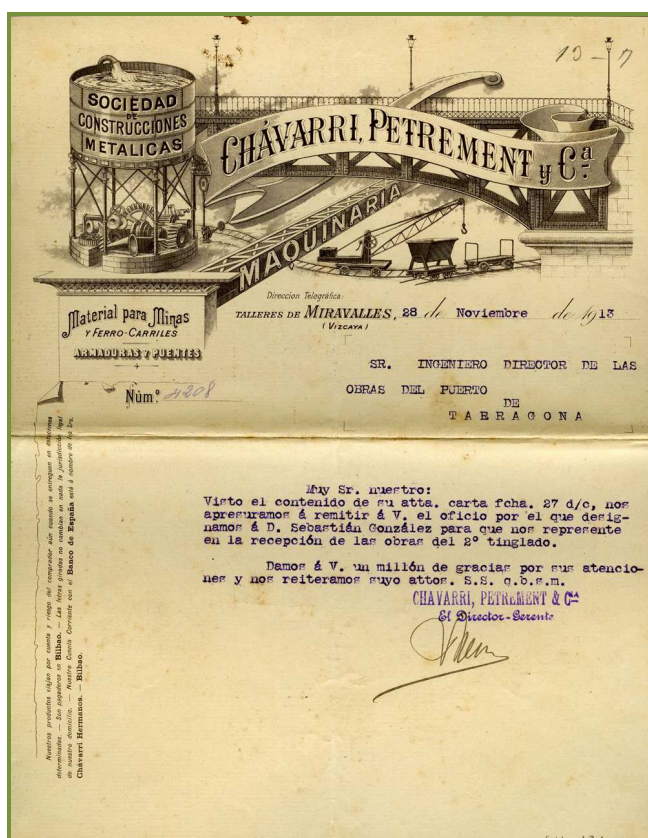 13-7
SOCIEDAD
DE
CONSTRUCCIONES
METALICAS
CHÁVARRI, PETREMENT y Cª
MAQUINARIA
Material para Minas
Y FERRO-CARRILES
ARMADURAS Y PUENTES
Direccion Telegráfica:
TALLERES DE MIRAVALLES, 28 de Noviembre de 1913
(VIZCAYA)
Núm.º 4208
SR. INGENIERO DIRECTOR DE LAS
OBRAS DEL PUERTO
DE
TARRAGONA
Muy Sr. nuestro:
Visto el contenido de su atta. carta fcha. 27 d/c, nos
apresuramos á remitir á V. el oficio por el que desig-
namos á D. Sebastián González para que nos represente
en la recepción de las obras del 2º tinglado.
Damos á V. un millón de gracias por sus atencio-
nes y nos reiteramos suyo attos. S.S. q.b.s.m.
CHAVARRI, PETREMENT & Cía
El Director-Gerente
Nuestros productos viajan por cuenta y riesgo del comprador aún cuando se entreguen en estaciones
determinadas. — Son pagaderos en Bilbao. — Las letras giradas no cambian en nada la jurisdicción legal
de nuestro domicilio. — Nuestra Cuenta Corriente con el Banco de España está á nombre de los Srs.
Chávarri Hermanos. — Bilbao.